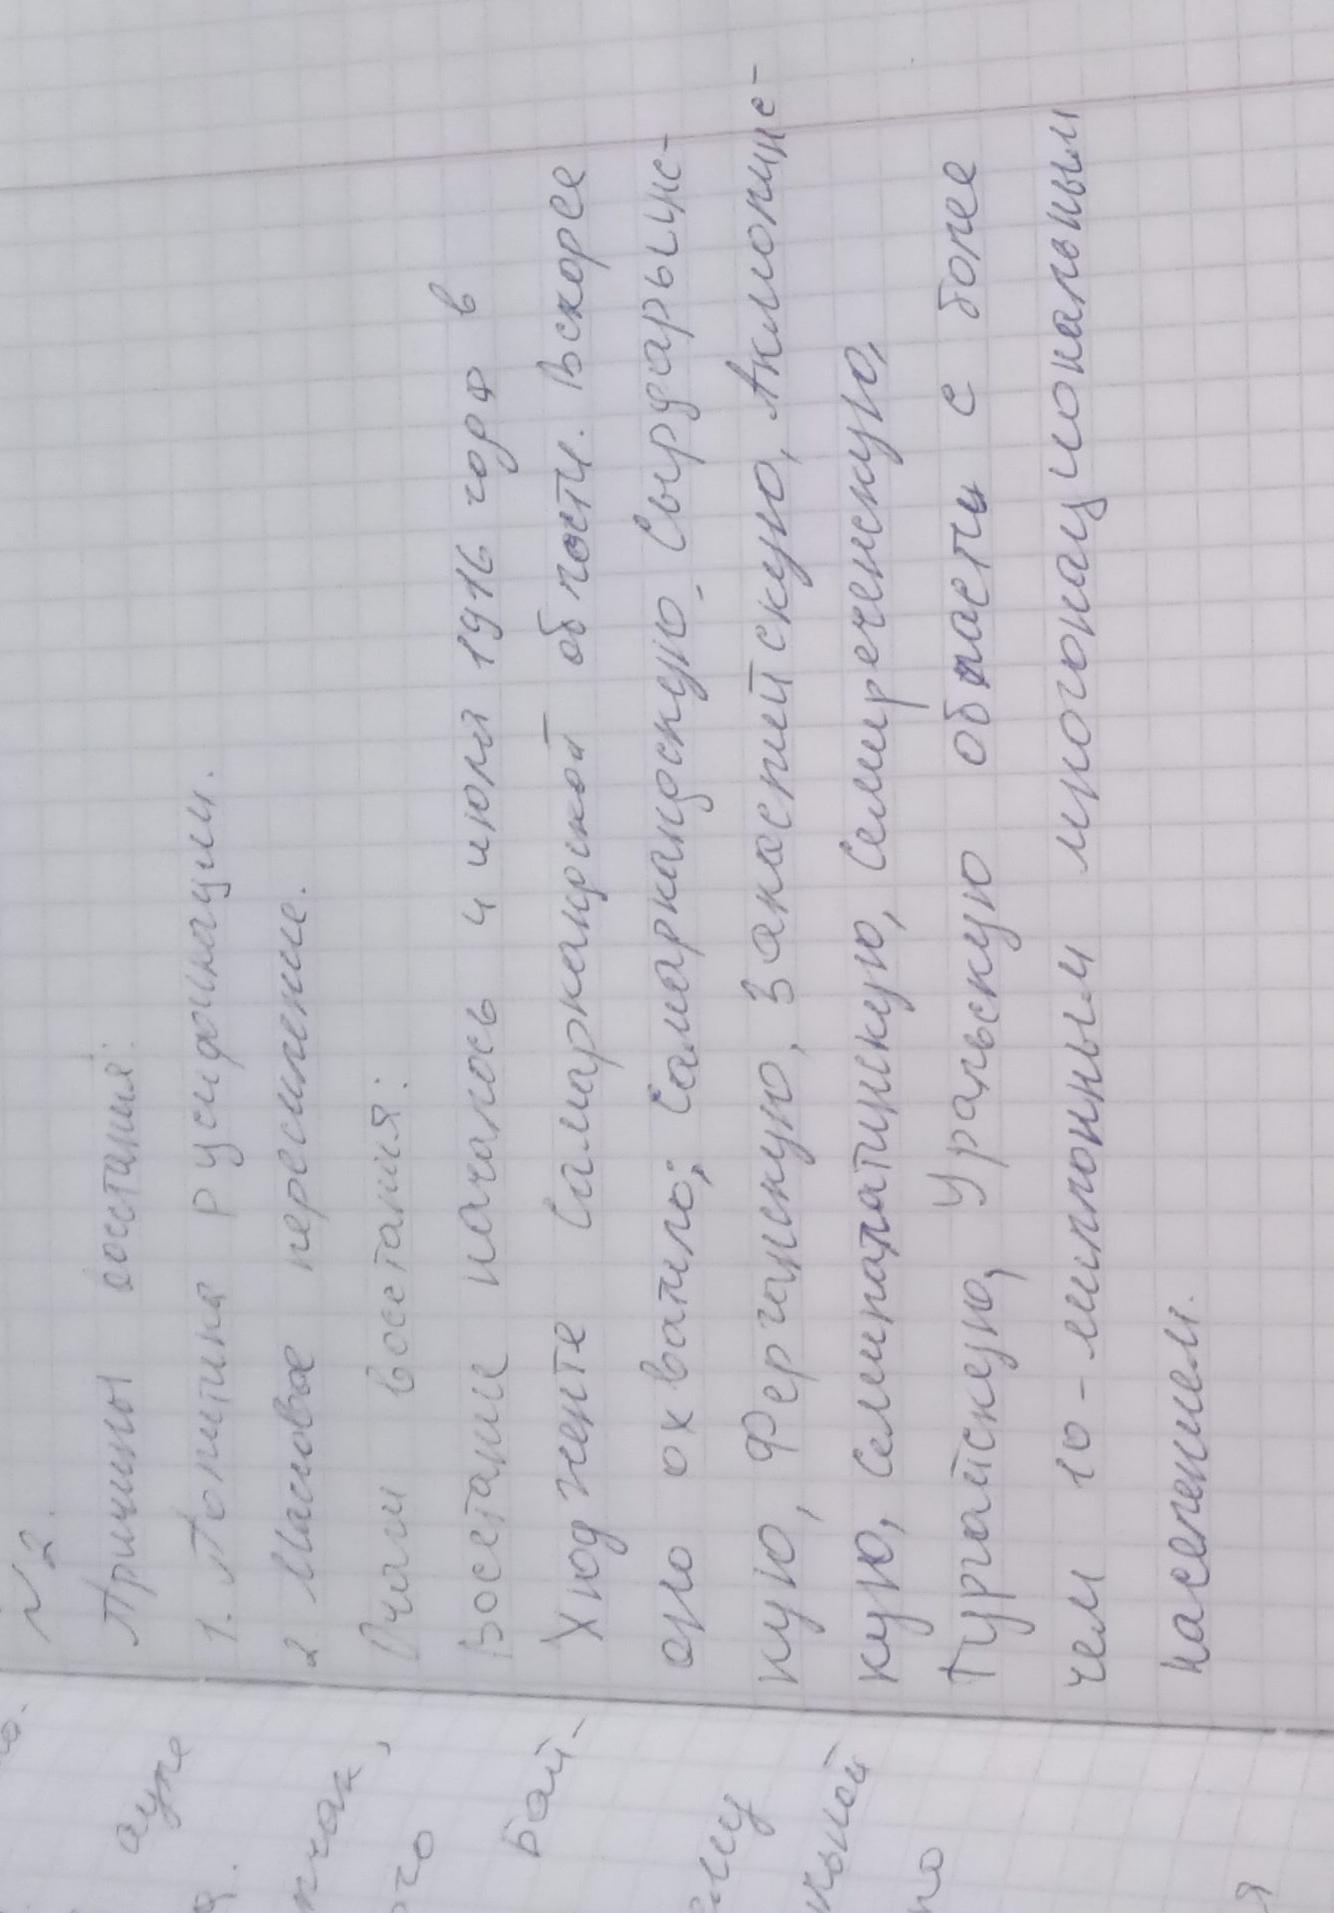 №2.
Причины восстания:
1. Политика русификации.
2. Массовое переселение.
Очаги восстания:
Восстание началось 4 июля 1916 года в
Ходженте Самаркандской области. Вскорее
оно охватило; Самаркандскую, Сырдарьинс-
кую, Ферганскую, Закаспийскую, Акмолинс-
кую, Семипалатинскую, Семиреченскую,
Тургайскую, Уральскую области с более
чем 10-миллионным многонациональным
населением.
ауле
нчак,
ого
Бай-
ему
но
я